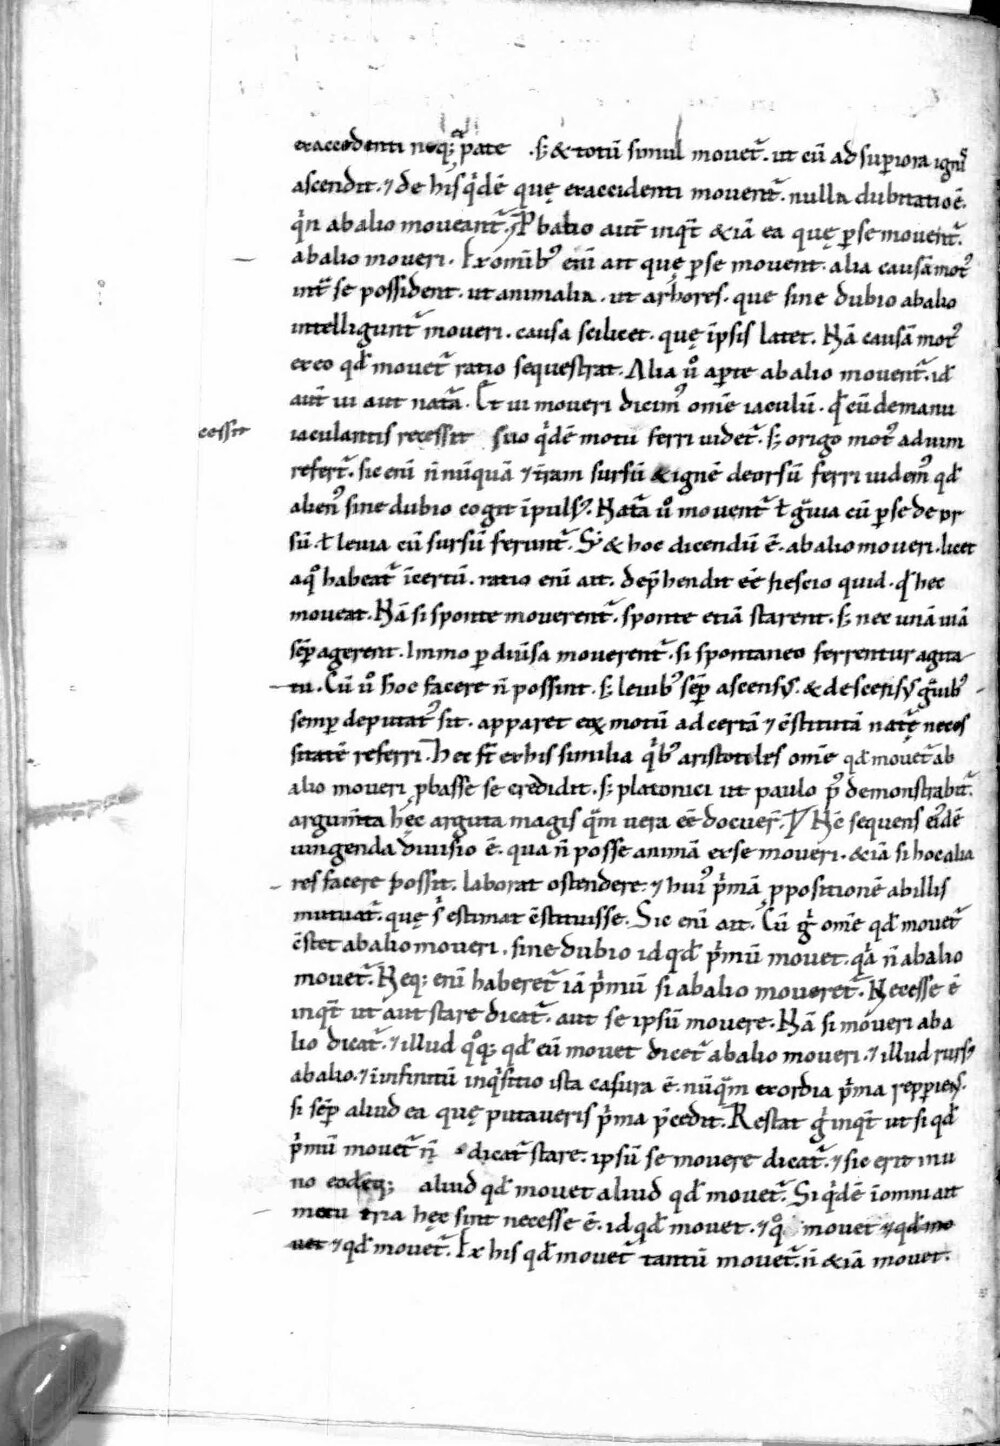 exaccidenti neq; p̄ate . s; & totū simul mouet᷑ . ut cū ad supiora ignis
ascendit . ⁊ de his q̇dē quę exaccidenti mouent᷑ . nulla dubitatio ē .
q̇n abalio moueant᷑ . P balio aut̄ inq̄t &iā ea quę p̱se mouent᷑ .
abalio moueri . Exomīb᷒ enī ait quę p̱se mouent . alia causā mot᷒
int᷑ se possident . ut animalia . ut arbores . que sine dubio abalio
intelligunt᷑ moueri . causa scilicet . quę īpsis latet . Nā causā mot᷒
ex eo qđ mouet᷑ ratio sequestrat . Alia ů ap̱te abalio mouent᷑ . id
aut̄ ui aut nat᷑a . Et ui moueri dicim᷒ omē iaculū . qđ cū demanu
cessit
iaculantis recessit suo q̇dē motu ferri uidet᷑ . s; origo mot᷒ aduim
refert᷑ . sic enī n̄ nūquā ⁊ t̄ram sursū & ignē deorsū ferri uidem᷒ qđ
alien᷒ sine dubio cogit īpuls᷒ . Nat᷑a ů mouent᷑ ł g̊uia cū p̱se deor
sū . ł leuia cū sursū ferunt᷑ . S; & hoc dicendū ē . abalio moueri . licet
aq̊ habeat᷑ īcertū . ratio enī ait . dep̄hendit eē nescio quid . qđ hec
moueat . Nā si sponte mouerent᷑ . sponte etiā starent . s; nec unā uiā
sēp̱ agerent . Immo p̱ diūsa mouerent᷑ . si spontaneo ferrentur agita
tu . Cū ů hoc facere n̄ possint . s; leuib᷒ sēp̱ ascensus . & descensus g̊uib᷒
semp̱ deputat᷒ sit . apparet eoꝝ motū ad certā ⁊ c̄stitutā nat᷑ę neces
sitatē referri . Hec st̄ ex his similia q̇b᷒ aristoteles omē qđ mouet᷑ ab
alio moueri p̱basse se credidit . s; platonici ut paulo p᷒ demonstrabit᷑ .
argum̄ta hęc arguta magis q̄m uera eē docuer̄ . Nc̄ sequens ei᷒dē
iungenda diuisio ē . qua n̄ posse animā exse moueri . &iā si hoc alia
res facere possit . laborat ostendere . ⁊ hui᷒ p̊mā p̱positionē abillis
mutuat᷑ . quę s; estimat c̄stituisse . Sic enī ait . Cū g̊ omē qđ mouet᷑
c̄stet abalio moueri . sine dubio id qđ p̊mū mouet . q̊a n̄ abalio
mouet᷑ . Neq; enī haberet᷑ iā p̊mū si abalio moueret᷑ . Necesse ē
inq̄t ut aut stare dicat᷑ . aut se ipsū mouere . Nā si moueri aba
lio dicat᷑ . ⁊ illud q̊q; qđ eū mouet dicet᷑ abalio moueri . ⁊ illud rurs᷒
abalio . ⁊ īnfinitū inq̇sitio ista casura ē . nūq̄m exordia p̊ma repperiens .
si sēp̱ aliud ea quę putaueris p̊ma p̄cedit . Restat g̊ inq̄t ut si qđ
p̊mū mouet᷑ n̄ dicat᷑ stare . ipsū se mouere dicat᷑ . ⁊ sic erit in u
no eodeq; aliud qđ mouet aliud qđ mouet᷑ . Siq̇dē ī omni ait
motu tria hęc sint necesse ē . id qđ mouet . ⁊ q̊ mouet ⁊ qđ mo
uet ⁊ qđ mouet᷑ . Ex his qđ mouet᷑ tantū mouet᷑ . n̄ &iā mouet .